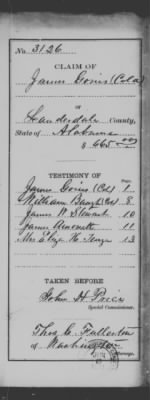 No. 3126
CLAIM OF
James Goins (Cold)
OF
Lauderdale County,
State of Alabama
$ 665
TESTIMONY OF
Page.
James Goins (Cold) 1
William (Cold) 8
James W. Stewart 10
James 11
Mrs Eliza K. 13
TAKEN BEFORE
John H. Price
Special Commissioner.
Thos. C. Fullerton
of Washington